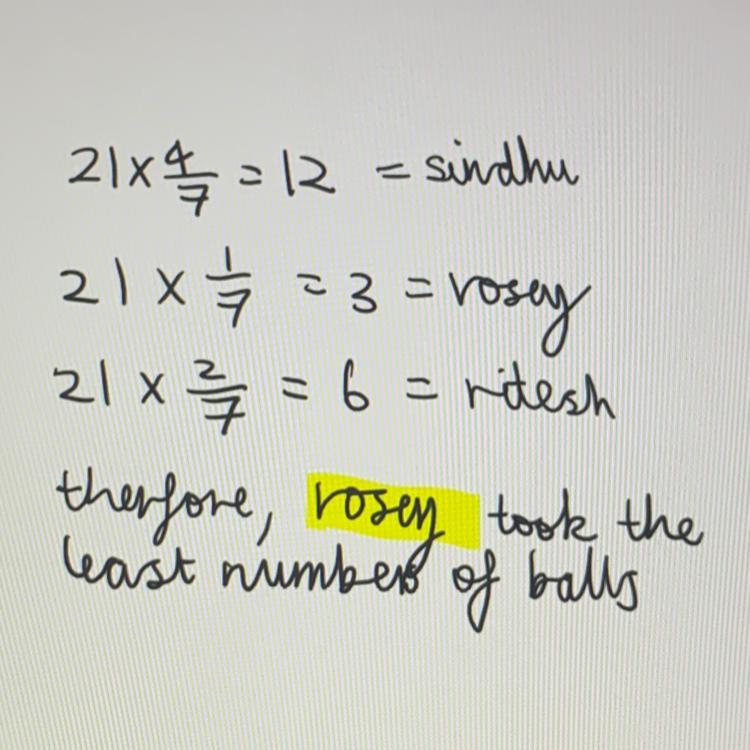 21 × 4/7 = 12 = sindhu
21 × 1/7 = 3 = rosey
21 × 2/7 = 6 = ritesh
therfore, rosey took the
least number of balls